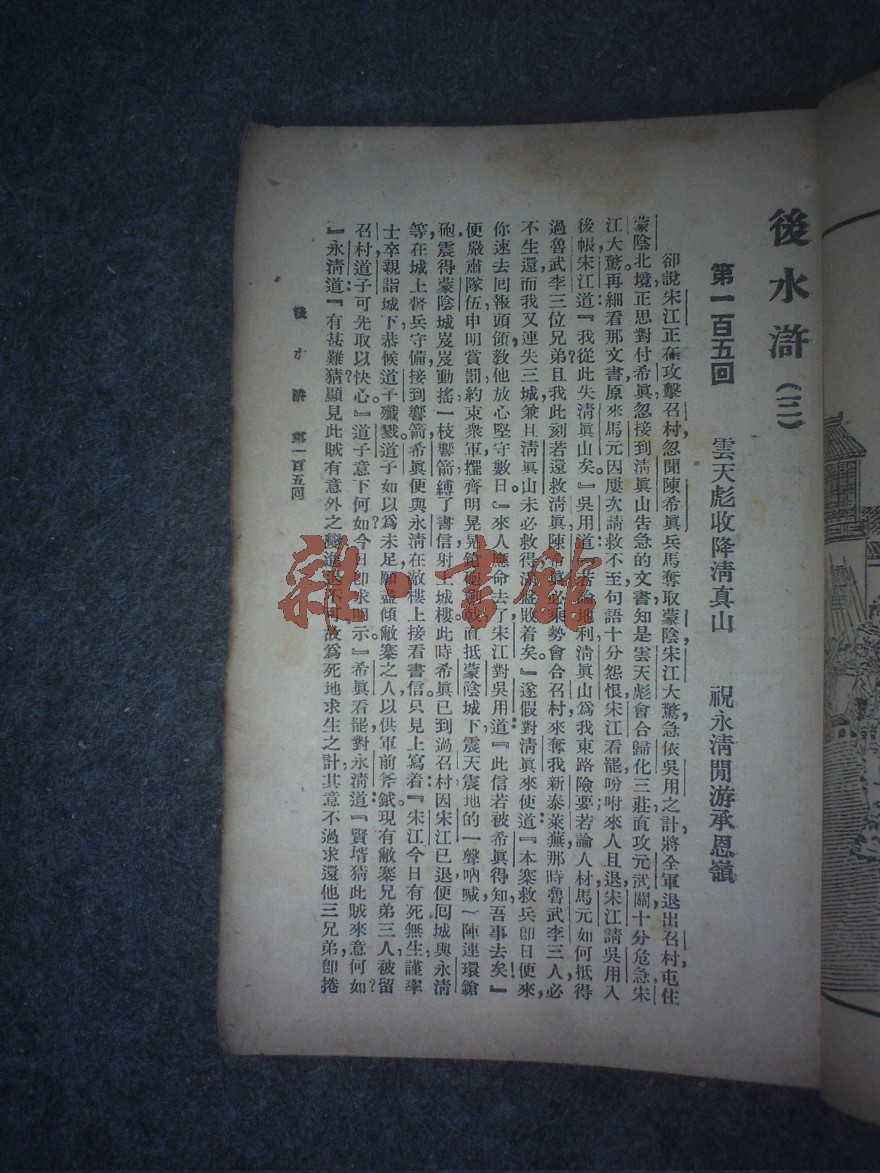 後水滸（三）
第一百五回　雲天彪收降清真山　祝永清閒游承恩嶺
卻說宋江正在攻擊召村，忽聞陳希眞兵馬奪取蒙陰，宋江大驚，急依吳用之計，將全軍退出召村，屯住
蒙陰北境，正思對付希眞，忽接到清眞山告急的文書，知是雲天彪會合歸化三莊，直攻元武關，十分危急，宋
江大驚，再細看那文書，原來馬元因屢次請救不至，句語十分怨恨，宋江看罷，吩咐來人且退，宋江請吳用入
後帳，宋江道：『我從此失清眞山矣。』吳用道：若論地利，清眞山爲我東路險要，若論人材，馬元如何抵得
過魯武李三位兄弟？且我此刻若還救清眞，陳希眞必乘勢會合召村，來奪我新泰萊蕪，那時魯武李三人必
不生還，而我又連失三城，兼且清眞山未必救得，滿盤敗着矣。』遂假對清眞來使道：『本寨救兵卽日便來，
你速去回報頭領，敎他放心堅守數日。』來人應命去了，宋江對吳用道：『此信若被希眞得知，吾事去矣！』
便嚴肅隊伍，申明賞罰，約束衆軍，擺齊明晃晃鎗砲劍戟，直抵蒙陰城下，震天震地的一聲吶喊，一陣連環鎗
砲，震得蒙陰城岌岌動搖，一枝響箭縛了書信，射上城樓，此時希眞已到過召村，因宋江已退，便回城與永清
等在城上督兵守備，接到響箭，希眞便與永清在敵樓上接看書信，只見上寫着：『宋江今日有死無生，謹率
士卒親詣城下，恭候道子殲戮，道子如以爲未足，願盡傾敝寨之人，以供軍前斧鉞，現有敝寨兄弟三人，被留
召村，道子可先取以快心。』道子意下何如？今日卽求明示。』希眞看罷，對永清道：『賢壻猜此賊來意何如？
』永清道：『有甚難猜，顯見此賊有意外之變，進退不可，故爲死地求生之計，其意不過求還他三兄弟，卽捲
後水滸　第一百五回
雜·書館